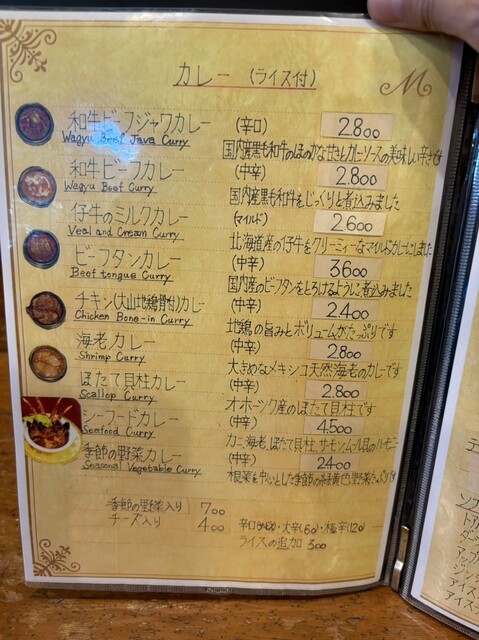 カレー (ライス付)
M
和牛ビーフジャワカレー (辛口) 2.800
Wagyu Beef Java Curry
国内産黒毛和牛のほのかな甘さとカレーソースの美味しい辛さです
和牛ビーフカレー (中辛) 2.800
Wagyu Beef Curry
国内産黒毛和牛をじっくりと煮込みました
仔牛のミルクカレー (マイルド) 2.600
Veal and Cream Curry
北海道産の仔牛をクリーミィーなマイルドカレーにしました
ビーフタンカレー (中辛) 3.600
Beef tongue Curry
国内産のビーフタンをとろけるように煮込みました
チキン(大山地鶏骨付)カレー (中辛) 2.400
Chicken Bone-in Curry
地鶏の旨みとボリュームがたっぷりです
海老カレー (中辛) 2.800
Shrimp Curry
大きめなメキシコ天然海老のカレーです
ほたて貝柱カレー (中辛) 2.800
Scallop Curry
オホーツク産のほたて貝柱です
シーフードカレー (中辛) 4.500
Seafood Curry
カニ、海老、ほたて貝柱、サーモン、ムール貝のハーモニー
季節の野菜カレー (中辛) 2.400
Seasonal Vegetable Curry
根菜を中心とした季節の緑黄色野菜たっぷりです
季節の野菜入り 700
チーズ入り 400
辛口 大辛(60)・極辛(120)
ライスの追加 300